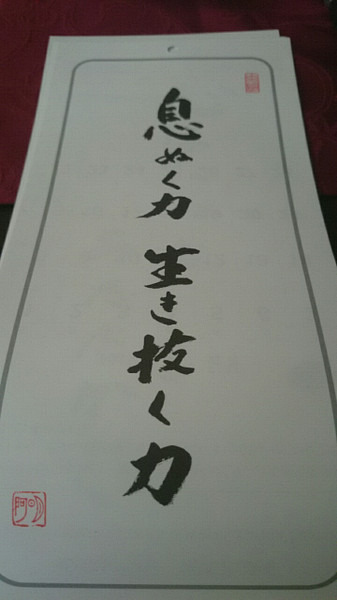 息ぬく力 生き抜く力